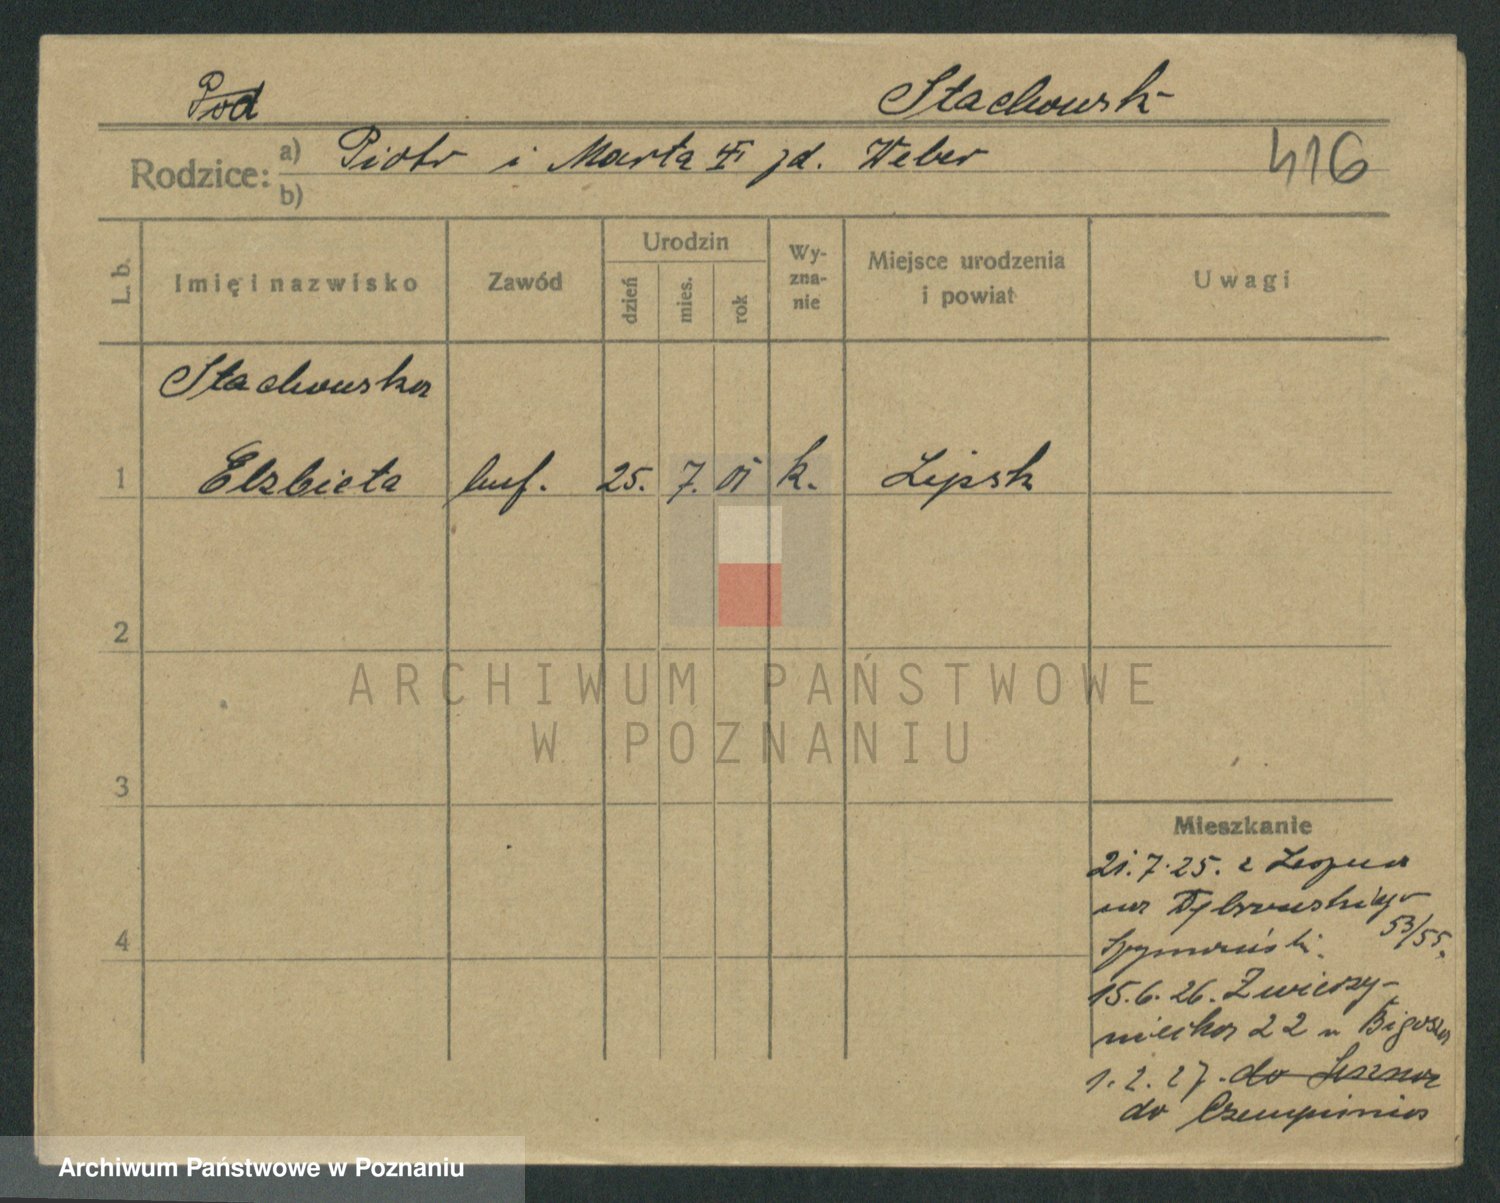 Pod Stachowsk
Rodzice: a) Piotr i Marta zd. Weber 416
b)
L. b. Imię i nazwisko Zawód Urodzin dzień mies. rok Wy-zna-nie Miejsce urodzenia i powiat Uwagi
Stachowska
1 Elzbieta buf. 25. 7. 01 k. Lipsk
2
ARCHIWUM PAŃSTWOWE
W POZNANIU
3
Mieszkanie
21. 7. 25. z
na Dąbrowskiego
53/55.
4
15. 6. 26. Zwierzy-
niecka 22 u
1. 2. 27. do
do Czempinia
Archiwum Państwowe w Poznaniu